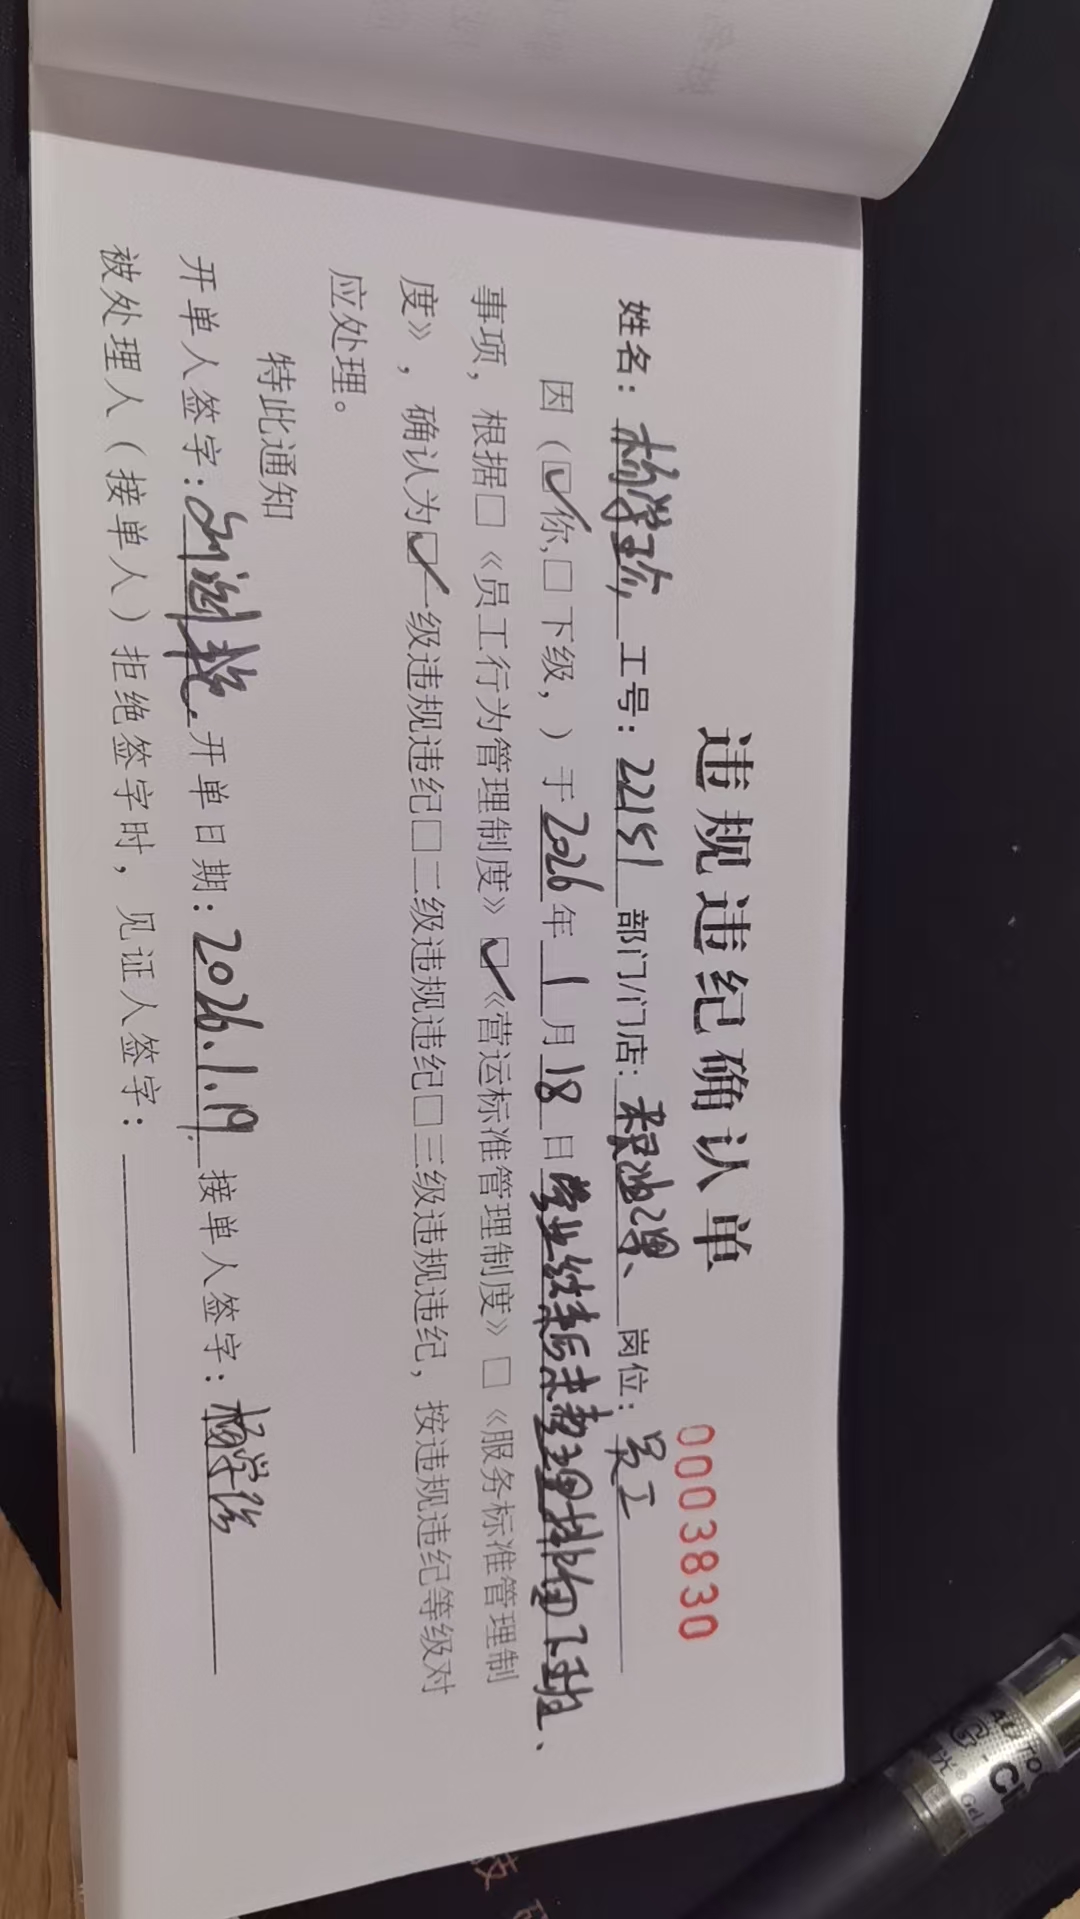 违规违纪确认单
0003830
姓名：杨学珍 工号：22151 部门/门店： 岗位：员工
因（☑你,□下级，）于2026年1月18日营业结束后未整理排面下班、
事项，根据□《员工行为管理制度》☑《营运标准管理制度》□《服务标准管理制
度》，确认为☑一级违规违纪□二级违规违纪□三级违规违纪，按违规违纪等级对
应处理。
特此通知
开单人签字： 开单日期：2026.1.19 接单人签字：杨学珍
被处理人（接单人）拒绝签字时，见证人签字：